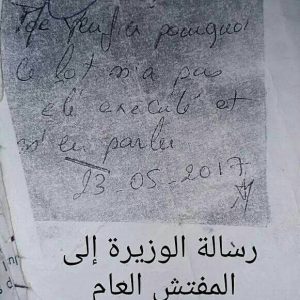 pourquoi
le lot n'a pas
été exécuté et
m'en parler
23-05-2017
رسالة الوزيرة إلى
المفتش العام